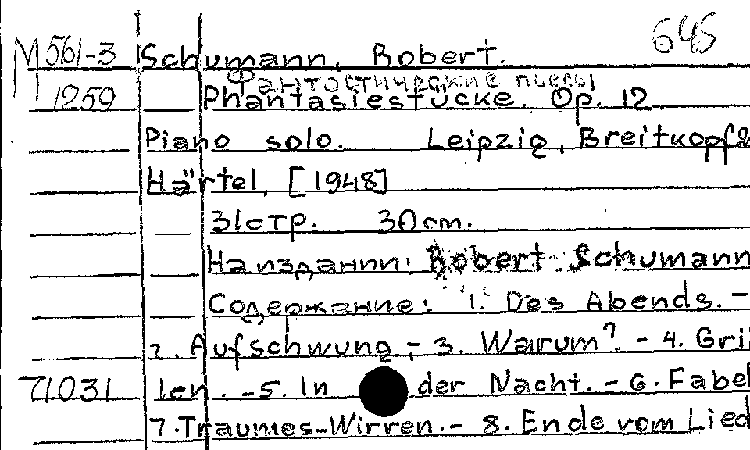 645
M 561-3 Schumann, Robert.
Фантостические пьесы
1259 Phantasiestücke. Op. 12
Piano solo. Leipzig, Breitkopf &
Härtel, [1948]
31стр. 30 cm.
На издании: Robert Schumann
Содержание: 1. Des Abends. -
2. Aufschwung - 3. Warum? - 4. Gril
71031 len. - 5. In der Nacht. - 6. Fabel
7. Traumes-Wirren. - 8. Ende vom Lied